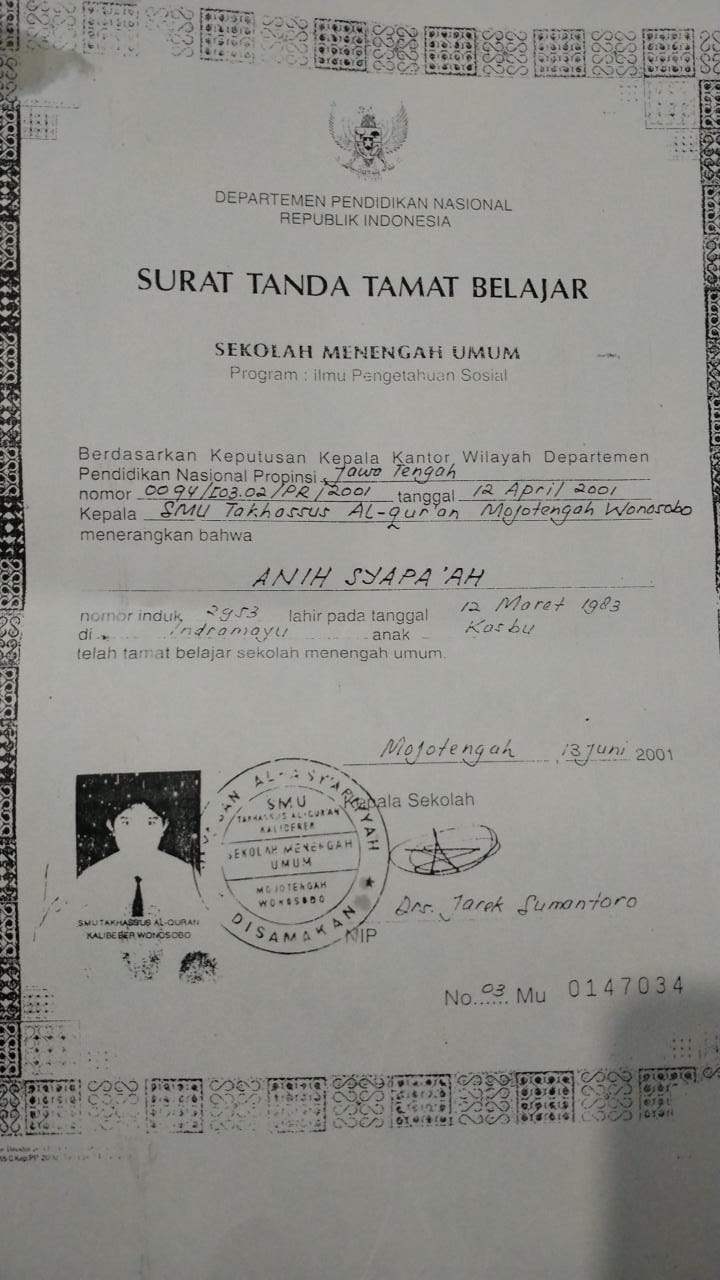 DEPARTEMEN PENDIDIKAN NASIONAL
REPUBLIK INDONESIA
SURAT TANDA TAMAT BELAJAR
SEKOLAH MENENGAH UMUM
Program : Ilmu Pengetahuan Sosial
Berdasarkan Keputusan Kepala Kantor Wilayah Departemen
Pendidikan Nasional Propinsi Jawa Tengah
nomor 0094/I03.02/PR/2001 tanggal 12 April 2001
Kepala SMU Takhassus AL-qur'an Mojotengah Wonosobo
menerangkan bahwa
ANIH SYAPA'AH
nomor induk 2953 lahir pada tanggal 12 Maret 1983
di Indramayu anak Kasbu
telah tamat belajar sekolah menengah umum.
Mojotengah, 13 Juni 2001
Kepala Sekolah
AL-ASY'ARIYYAH
SMU
TAKHASSUS AL-QUR'AN
KALIBEBER
SEKOLAH MENENGAH
UMUM
MOJOTENGAH
WONOSOBO
DISAMAKAN
Drs. Jarek Sumantoro
NIP
SMU TAKHASSUS AL-QURAN
KALIBEBER WONOSOBO
No. 03 Mu 0147034